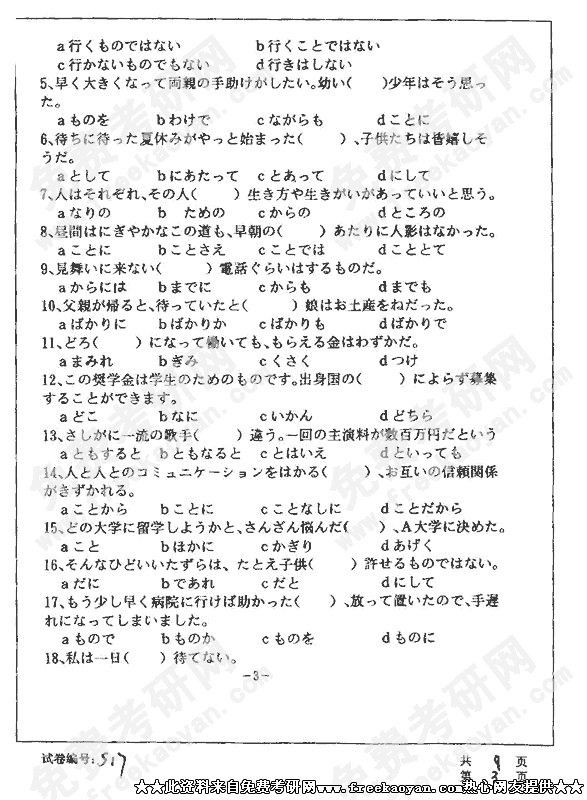 a行くものではない b行くことではない
c行かないものでもない d行きはしない
5、早く大きくなって両親の手助けがしたい。幼い( )少年はそう思っ
た。
aものを bわけで cながらも dことに
6、待ちに待った夏休みがやっと始まった( )、子供たちは皆嬉しそ
うだ。
aとして bにあたって cとあって dにして
7、人はそれぞれ、その人( )生き方や生きがいがあっていいと思う。
aなりの b ための cからの dところの
8、昼間はにぎやかなこの道も、早朝の( )あたりに人影はなかった。
aことに bことさえ cことでは dこととて
9、見舞いに来ない( )電話ぐらいはするものだ。
aからには bまでに cからも dまでも
10、父親が帰ると、待っていたと( )娘はお土産をねだった。
aばかりに bばかりか cばかりも dばかりで
11、どろ( )になって働いても、もらえる金はわずかだ。
aまみれ bぎみ cくさく dつけ
12、この奨学金は学生のためのものです。出身国の( )によらず募集
することができます。
aどこ bなに cいかん dどちら
13、さしがに一流の歌手( )違う。一回の主演料が数百万円だという
aともすると bともなると cとはいえ dといっても
14、人と人とのコミュニケーションをはかる( )、お互いの信頼関係
がきずかれる。
aことから bことに cことなしに dことだから
15、どの大学に留学しようかと、さんざん悩んだ( )、A大学に決めた。
aこと bほかに cかぎり dあげく
16、そんなひどいいたずらは、たとえ子供( )許せるものではない。
aだに bであれ cだと dにして
17、もう少し早く病院に行けば助かった( )、放って置いたので、手遅
れになってしまいました。
aもので bものか cものを dものに
18、私は一日( )待てない。
-3-
试卷编号:517 共 9 页
第 3 页
★★此资料来自免费考研网www.freekaoyan.com热心网友提供★★
免费考研网
www.freekaoyan.com